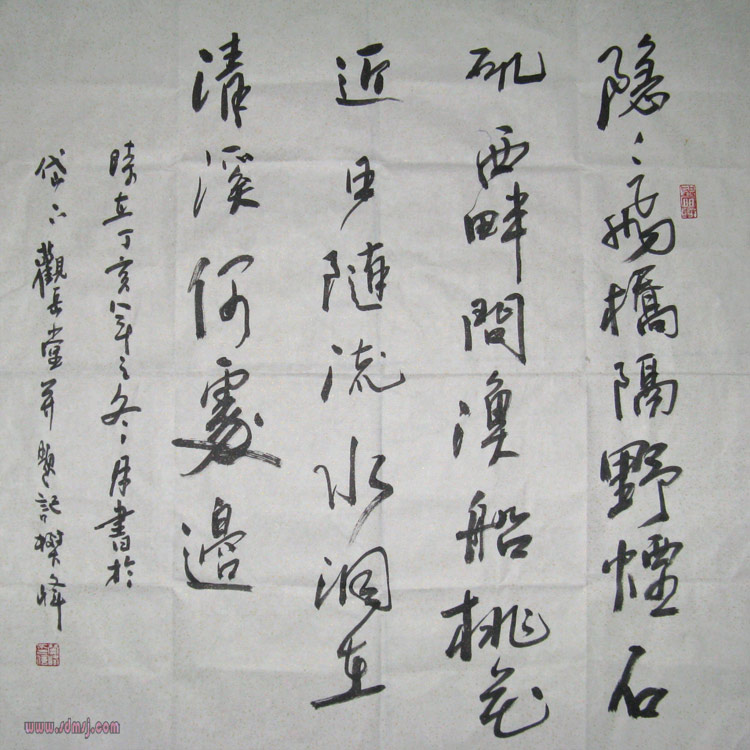 隐〻飛橋隔野煙石
矶西畔問漁船桃花
近日随流水洞在
清溪何處邊
時在丁亥年之冬月書於
岱下觀岳堂并題記
www.sdmsj.com